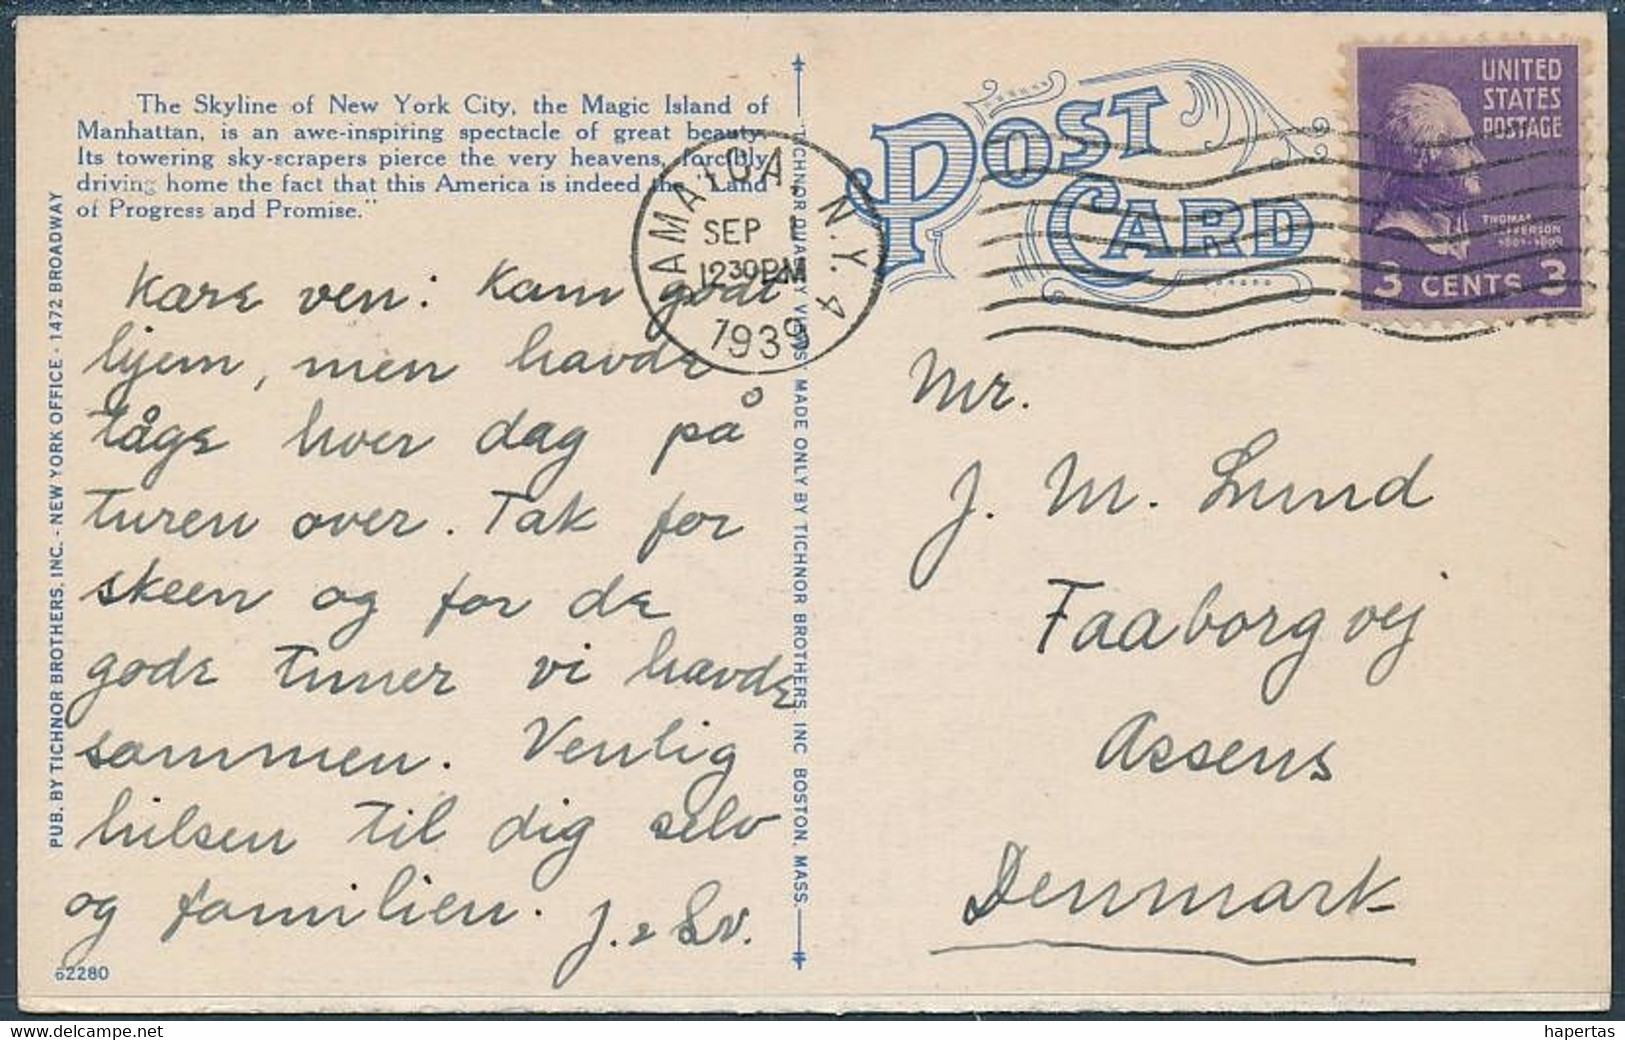 The Skyline of New York City, the Magic Island of
Manhattan, is an awe-inspiring spectacle of great beauty.
Its towering sky-scrapers pierce the very heavens, forcibly
driving home the fact that this America is indeed the "Land
of Progress and Promise."
Kære ven: Kom godt
hjem, men havde
tåge hver dag på
turen over. Tak for
skeen og for de
gode timer vi havde
sammen. Venlig
hilsen til dig selv
og familien. J.
62280
PUB. BY TICHNOR BROTHERS, INC. - NEW YORK OFFICE - 1472 BROADWAY
TICHNOR QUALITY VIEWS, MADE ONLY BY TICHNOR BROTHERS, INC BOSTON, MASS
JAMAICA, N.Y. 4
SEP 1
12 30 PM
1939
POST
CARD
UNITED
STATES
POSTAGE
THOMAS
JEFFERSON
1801-1809
3 CENTS 3
Mr.
J. M. Lund
Faaborg vej
Assens
Denmark
www.delcampe.net
hapertas